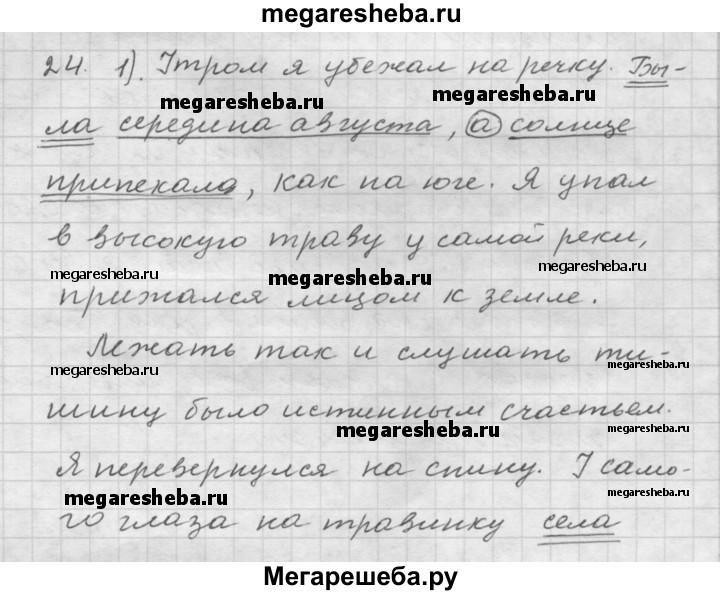 megaresheba.ru
24. 1). Утром я убежал на речку. Бы-
megaresheba.ru
megaresheba.ru
ла середина августа, а солнце
припекало, как на юге. Я упал
в высокую траву у самой реки,
megaresheba.ru
megaresheba.ru
megaresheba.ru
прижался лицом к земле.
Лежать так и слушать ти-
megaresheba.ru
megaresheba.ru
шину было истинным счастьем.
megaresheba.ru
Я перевернулся на спину. У само-
megaresheba.ru
megaresheba.ru
го глаза на травинку села
Мегарешеба.ру